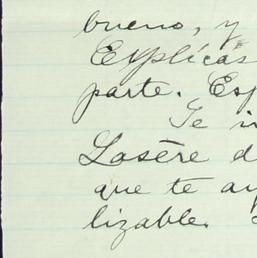 bueno, y
Explícas
parte. Esp
Te in
Lasère d
que te ay
lizable.